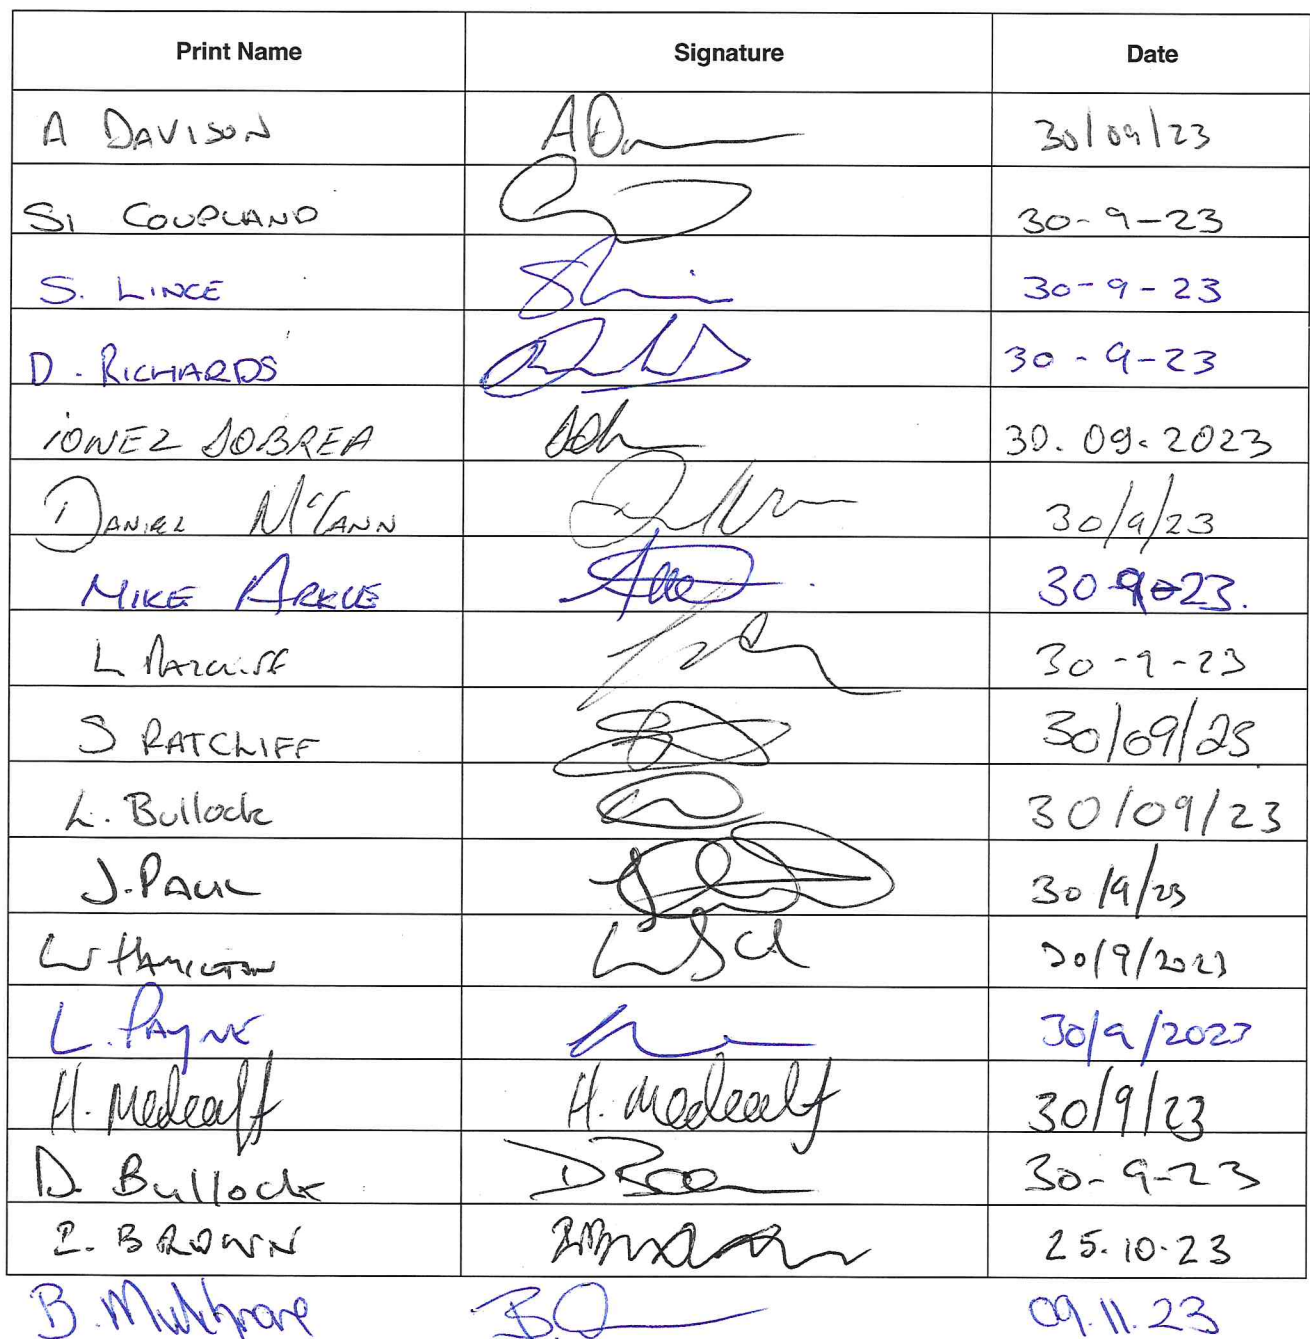 Print Name Signature Date
A DAVISON 30/09/23
Si COUPLAND 30-9-23
S. LINCE 30-9-23
D. RICHARDS 30-9-23
IONEZ DOBREA 30.09.2023
DANIEL McCANN 30/9/23
MIKE ARKLE 30-9-23.
L RATCLIFF 30-9-23
S RATCLIFF 30/09/23
L. Bullock 30/09/23
J. PAUL 30/9/23
W HAMILTON 30/9/2023
L. PAYNE 30/9/2023
H. Medcalf H. Medcalf 30/9/23
D. Bullock 30-9-23
Z. BROWN 25.10.23
B. 09.11.23